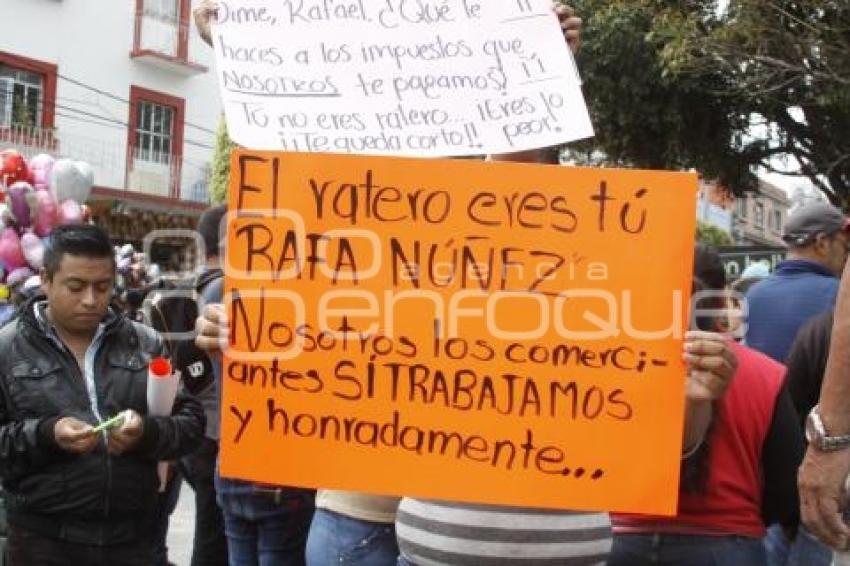 Dime, Rafael. ¿Qué le
haces a los impuestos que
NOSOTROS te pagamos?
Tú no eres ratero... ¡Eres lo
¡¡Te queda corto!! peor!
El ratero eres tú
"RAFA NÚÑEZ"
Nosotros los comerci-
antes SÍ TRABAJAMOS
y honradamente...
agencia
enfoque